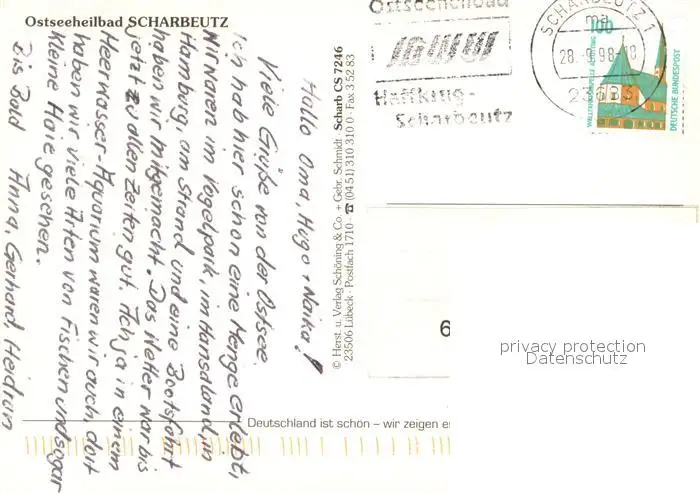 Ostseeheilbad SCHARBEUTZ
Hallo Oma, Hugo + Naika!
Viele Grüße von der Ostsee.
Ich hab hier schon eine Menge erlebt,
Wir waren im Vogelpark, im Hansaland, in
Hamburg, am Strand und eine Bootsfahrt
haben wir mitgemacht. Das Wetter war bis
jetzt zu allen Zeiten gut. Ach ja in einem
Meerwasser-Aquarium waren wir auch, dort
haben wir viele Arten von Fischen und sogar
kleine Haie gesehen.
Bis Bald Anna, Gerhard, Heidrun
© Herst. u. Verlag Schöning & Co. + Gebr. Schmidt · Scharb CS 7246
23506 Lübeck · Postfach 1710 · ☎ (04 51) 310 310 0 · Fax 3 52 83
Deutschland ist schön – wir zeigen es
Ostseeheilbad
Haffkrug-
Scharbeutz
SCHARBEUTZ 1
ma
23683
100
WALLFAHRTSKAPELLE ALTÖTTING
DEUTSCHE BUNDESPOST
6
privacy protection
Datenschutz